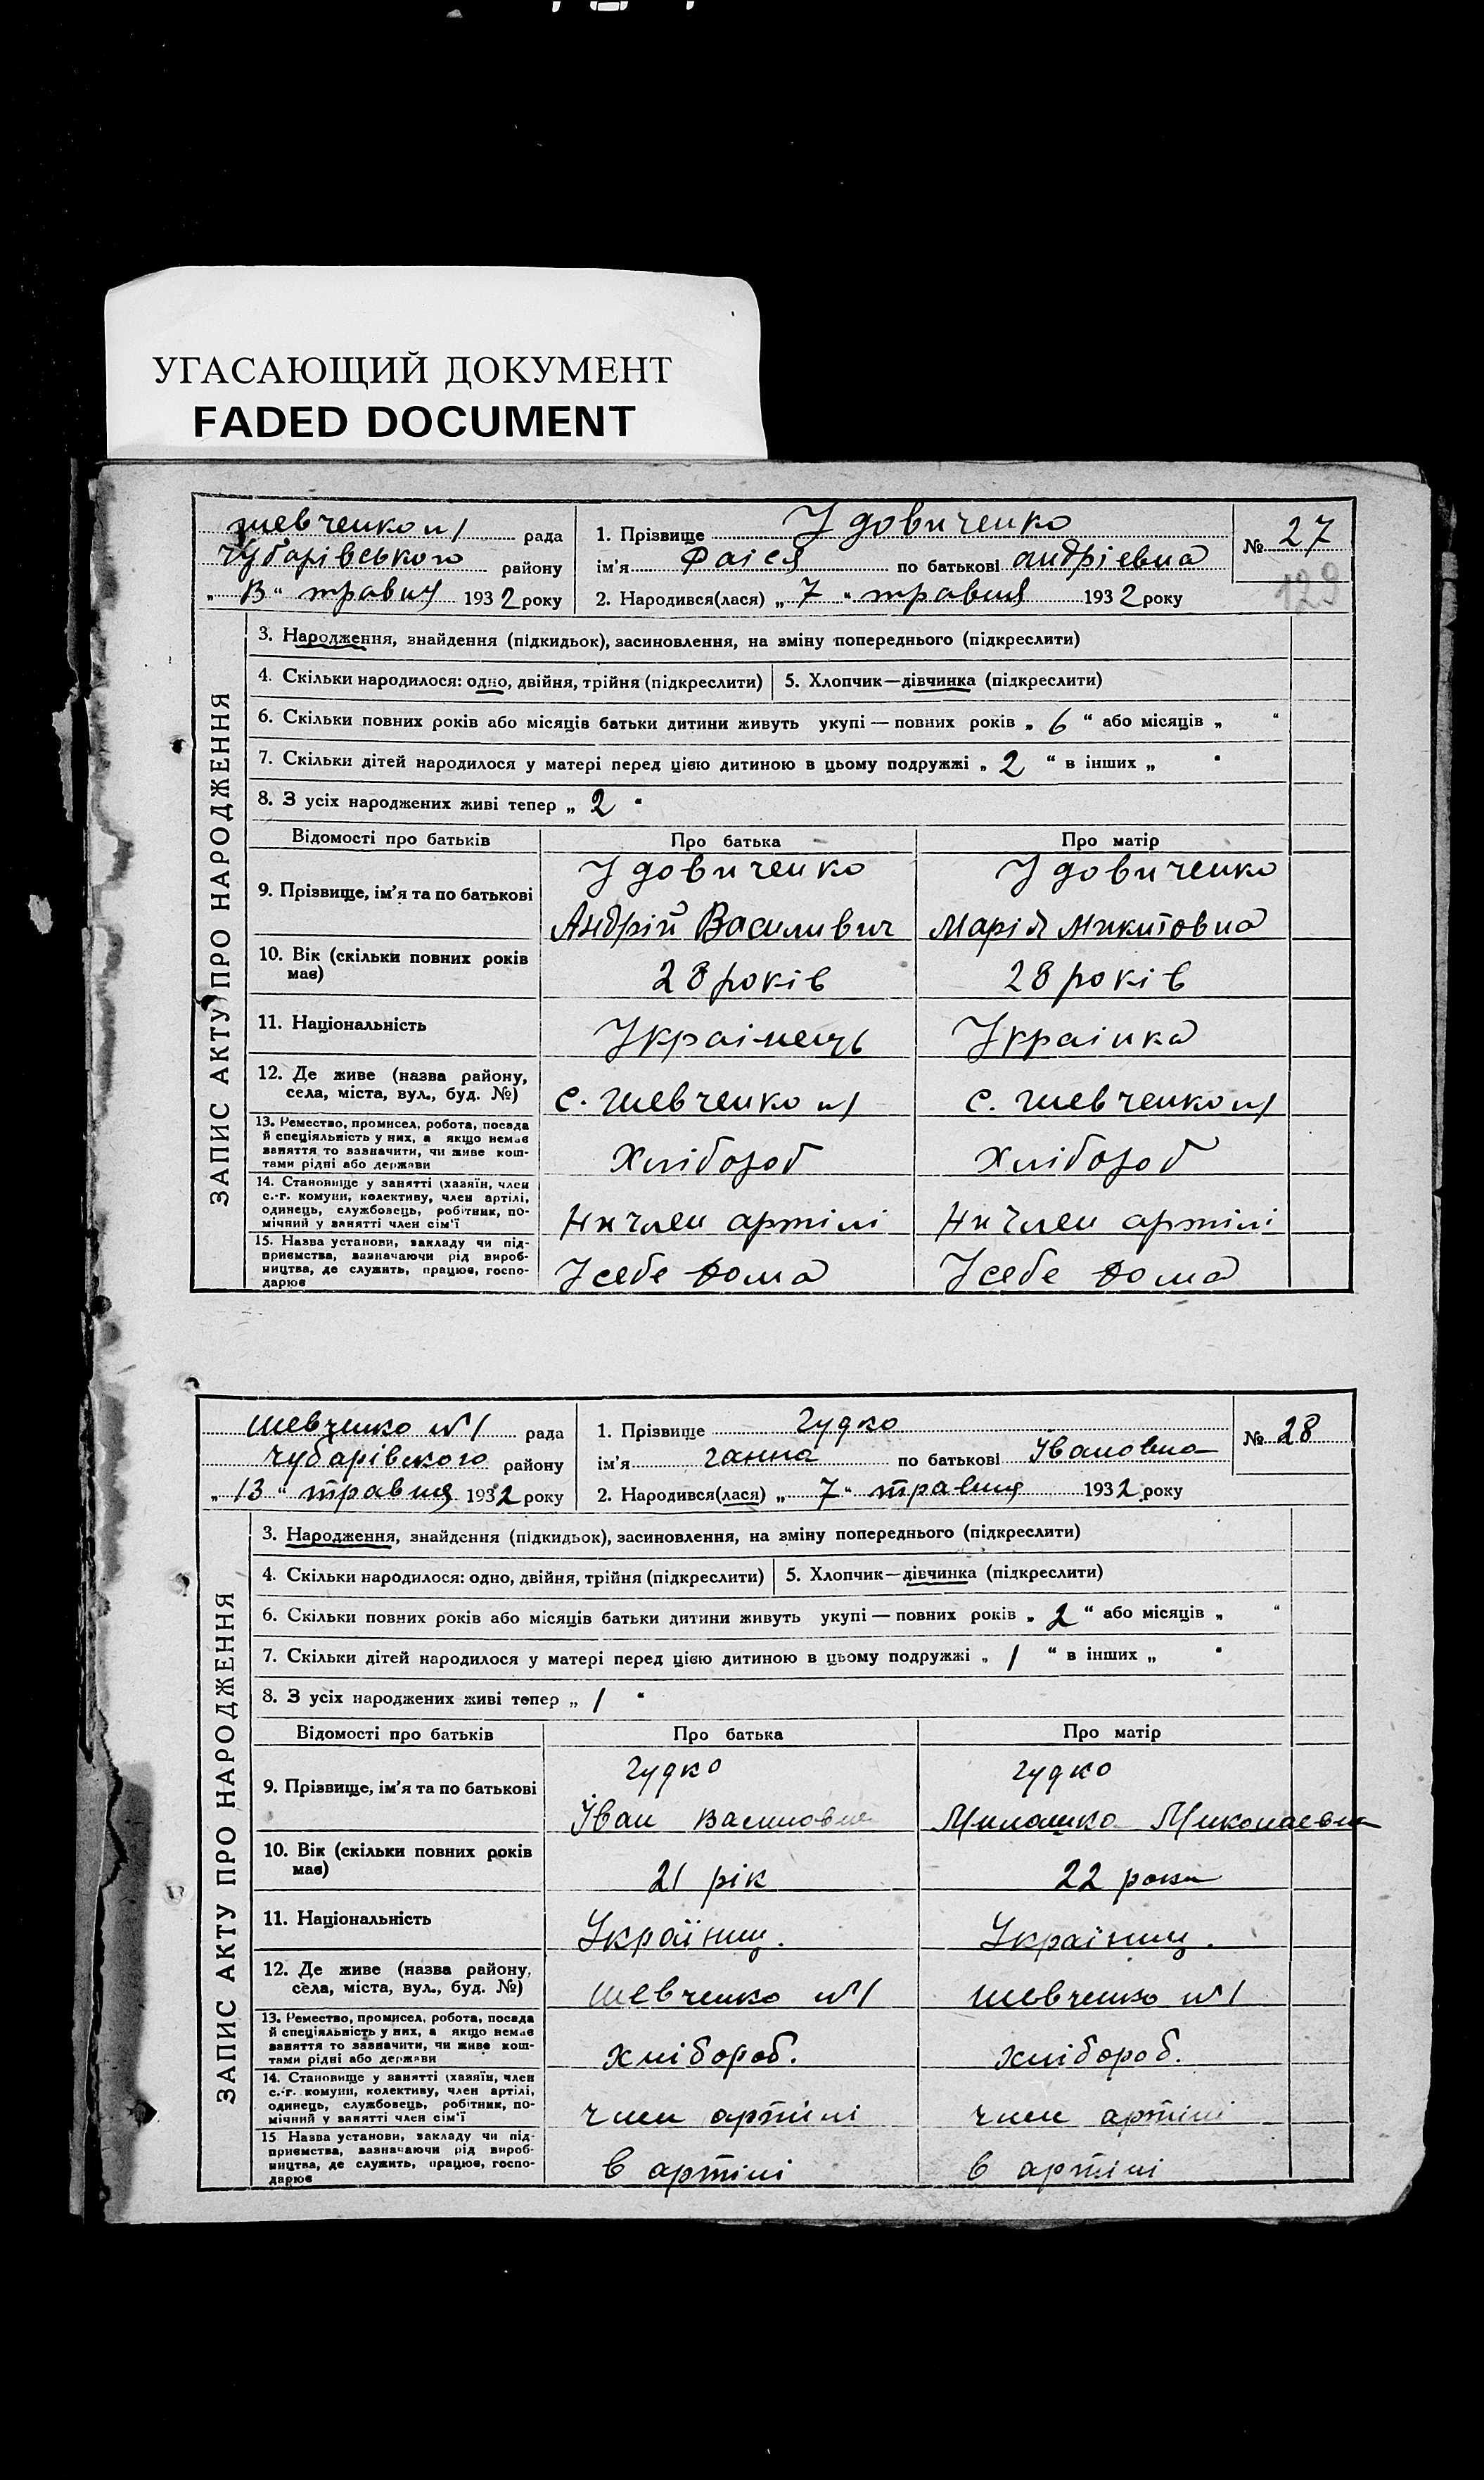 УГАСАЮЩИЙ ДОКУМЕНТ
FADED DOCUMENT
ЗАПИС АКТУ ПРО НАРОДЖЕННЯ
Шевченко №1 рада
Чубарівського району
„ 13 “ травня 1932 року
1. Прізвище Удовиченко
ім'я Фаіся по батькові Андріевна
2. Народився(лася) „ 7 “ травня 1932 року
№ 27
129
3. Народження, знайдення (підкидьок), засиновлення, на зміну попереднього (підкреслити)
4. Скільки народилося: одно, двійня, трійня (підкреслити) 5. Хлопчик—дівчинка (підкреслити)
6. Скільки повних років або місяців батьки дитини живуть укупі — повних років „ 6 “ або місяців „ “
7. Скільки дітей народилося у матері перед цією дитиною в цьому подружжі „ 2 “ в інших „ “
8. З усіх народжених живі тепер „ 2 “
Відомості про батьків Про батька Про матір
9. Прізвище, ім'я та по батькові
Удовиченко Удовиченко
Андрій Василивич Марія Микитовна
10. Вік (скільки повних років
має)
28 років 28 років
11. Національність Украінець Украінка
12. Де живе (назва району,
села, міста, вул., буд. №)
с. Шевченко №1 с. Шевченко №1
13. Ремество, промисел, робота, посада
й спеціяльність у них, а якщо немає
заняття то зазначити, чи живе кош-
тами рідні або держави
Хлібороб Хлібороб
14. Становище у занятті (хазяїн, член
с.-г. комуни, колективу, член артілі,
одинець, службовець, робітник, по-
мічний у занятті член сім'ї
член артілі член артілі
15. Назва установи, закладу чи під-
приємства, зазначаючи рід вироб-
ництва, де служить, працює, госпо-
дарює
У себе дома У себе дома
ЗАПИС АКТУ ПРО НАРОДЖЕННЯ
Шевченко №1 рада
Чубарівского району
„ 13 “ травня 1932 року
1. Прізвище Гудко
ім'я Ганна по батькові Івановна
2. Народився(лася) „ 7 “ травня 1932 року
№ 28
3. Народження, знайдення (підкидьок), засиновлення, на зміну попереднього (підкреслити)
4. Скільки народилося: одно, двійня, трійня (підкреслити) 5. Хлопчик—дівчинка (підкреслити)
6. Скільки повних років або місяців батьки дитини живуть укупі — повних років „ 2 “ або місяців „ “
7. Скільки дітей народилося у матері перед цією дитиною в цьому подружжі „ 1 “ в інших „ “
8. З усіх народжених живі тепер „ 1 “
Відомості про батьків Про батька Про матір
9. Прізвище, ім'я та по батькові
Гудко Гудко
Іван Миколаевна
10. Вік (скільки повних років
має)
21 рік 22 роки
11. Національність Україниц. Україниц.
12. Де живе (назва району,
села, міста, вул., буд. №)
Шевченко №1 Шевченко №1
13. Ремество, промисел, робота, посада
й спеціяльність у них, а якщо немає
заняття то зазначити, чи живе кош-
тами рідні або держави
хлібороб. хлібороб.
14. Становище у занятті (хазяїн, член
с.-г. комуни, колективу, член артілі,
одинець, службовець, робітник, по-
мічний у занятті член сім'ї
член артілі член артілі
15 Назва установи, закладу чи під-
приємства, зазначаючи рід вироб-
ництва, де служить, працює, госпо-
дарює
в артілі в артілі